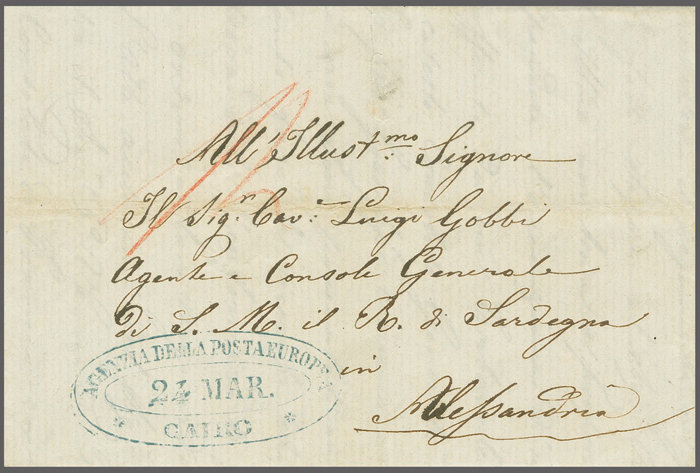 All'Illust.mo Signore
Il Sig.r Cav.e Luigi Gobbi
Agente e Console Generale
di S. M. il R. di Sardegna
in
Alessandria
AGENZIA DELLA POSTA EUROPEA
24 MAR.
CAIRO